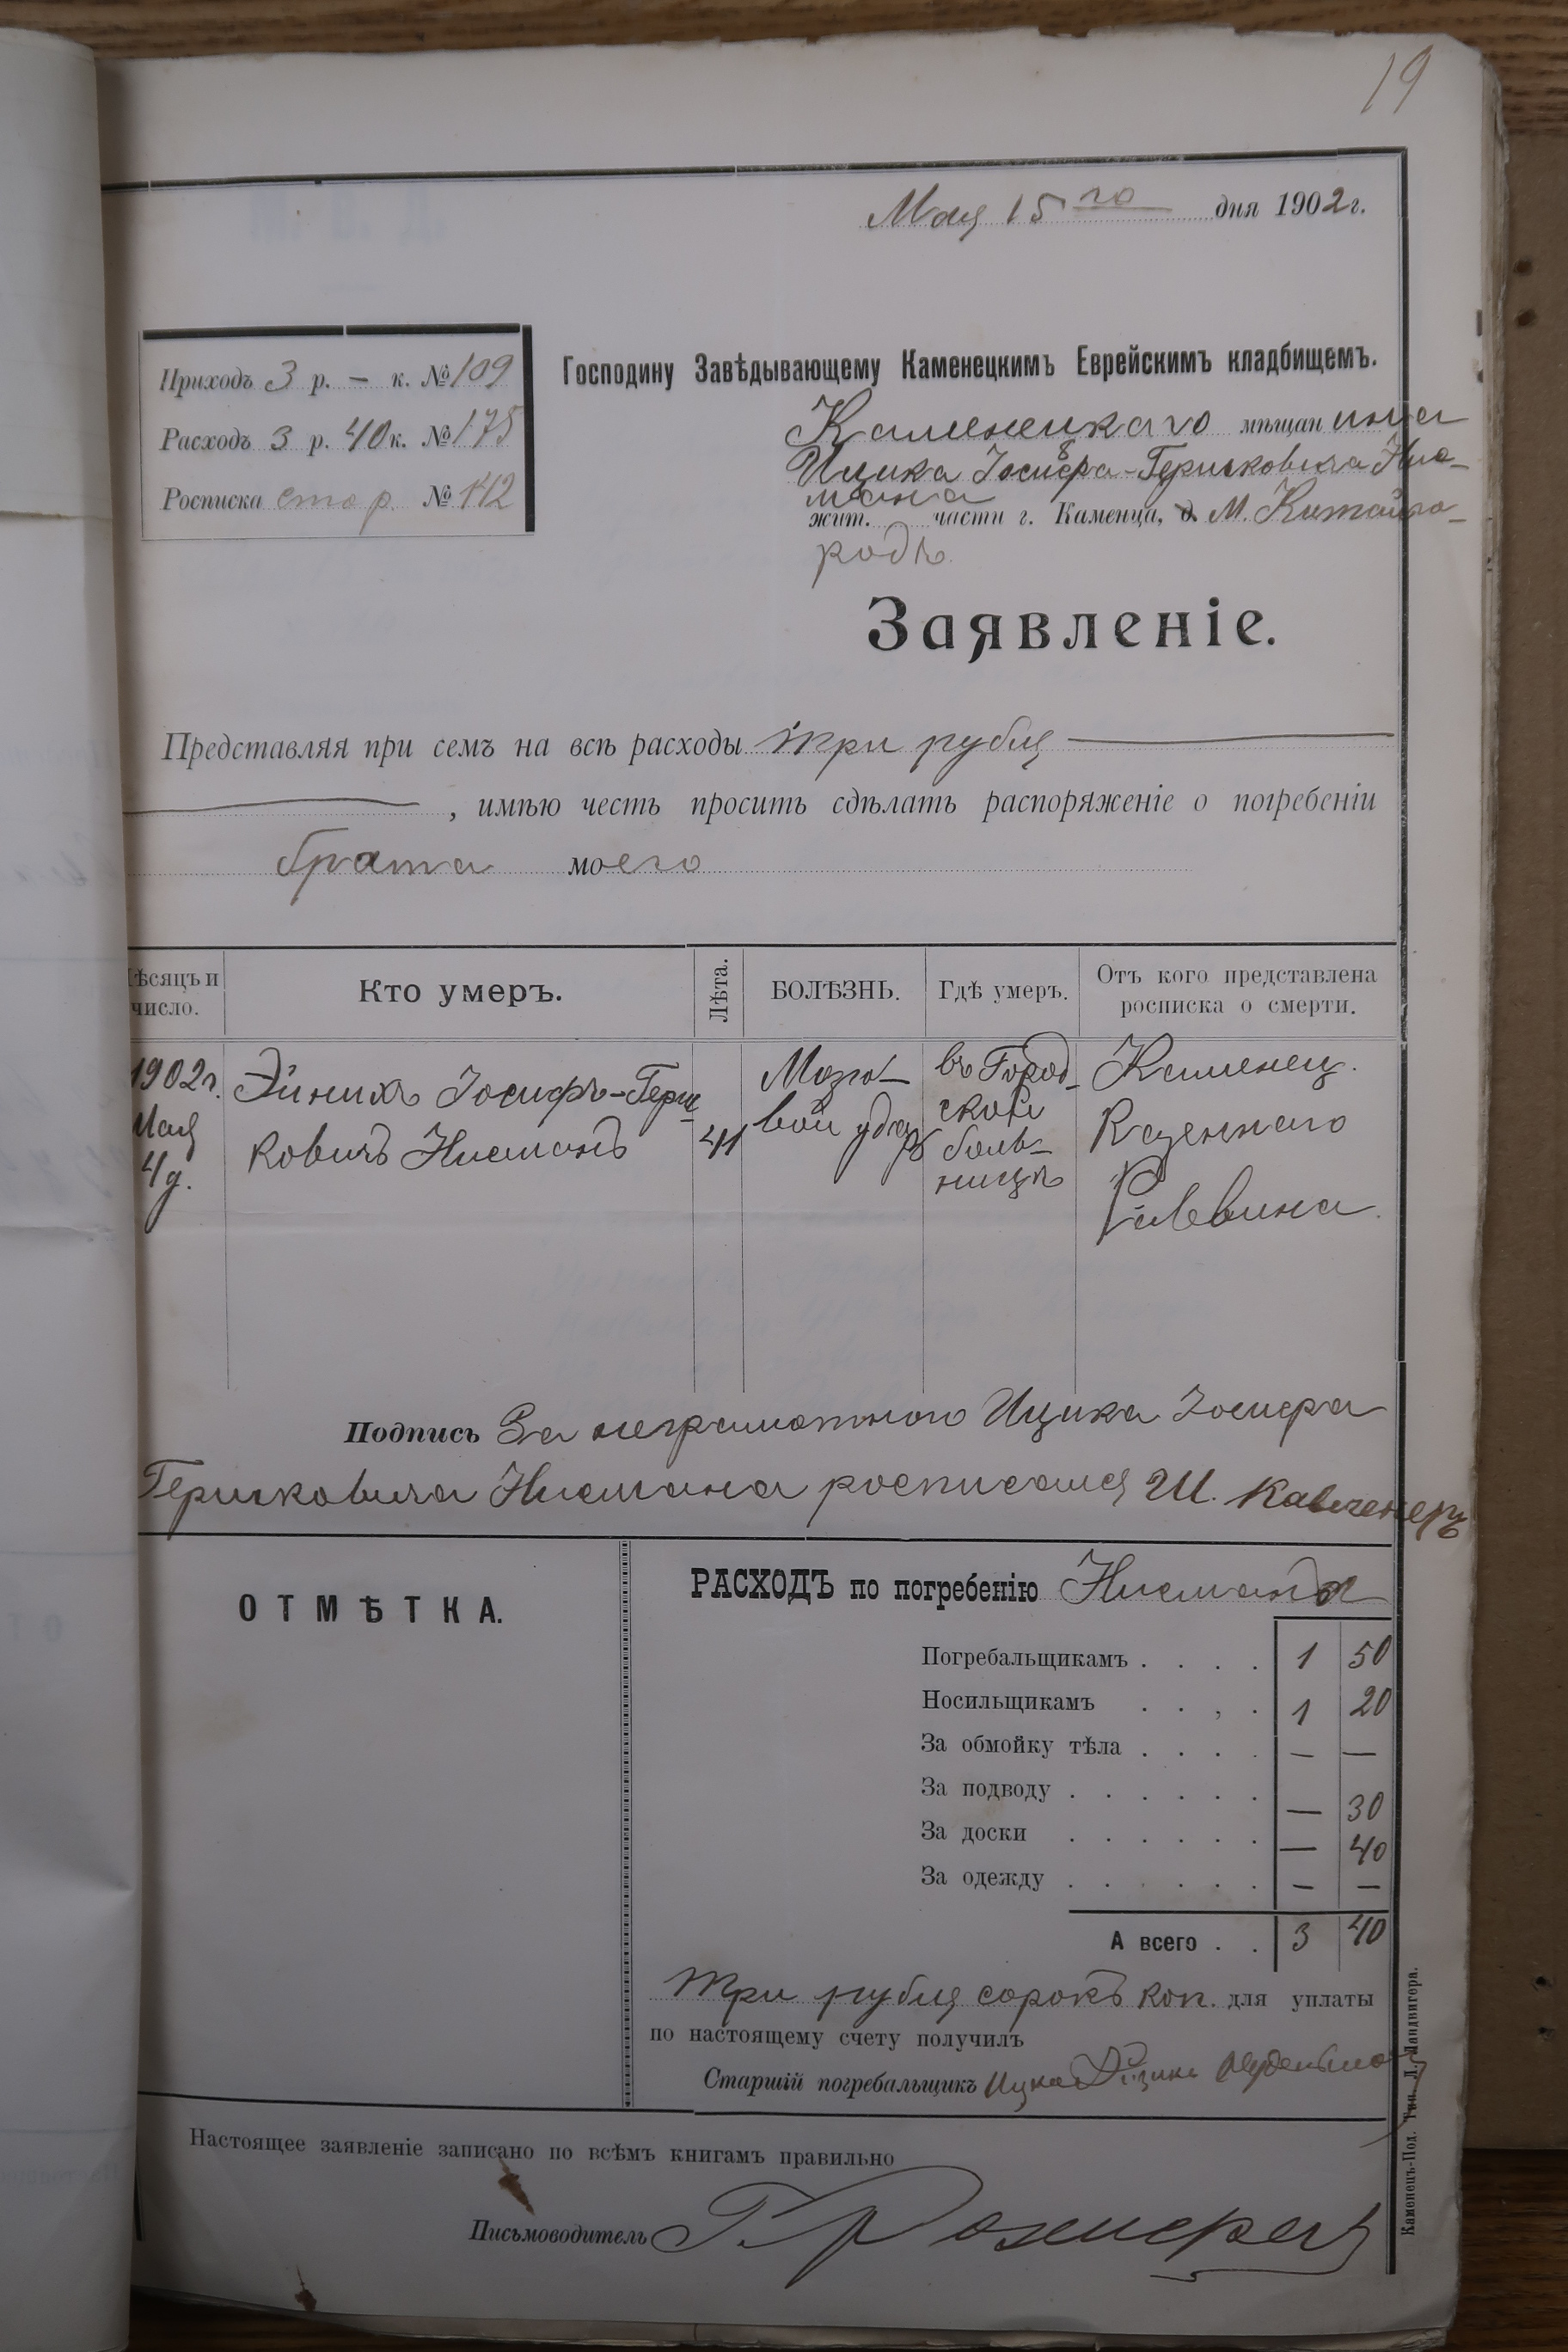 19
Мая 15 го дня 1902 г.
Приходъ 3 р. — к. № 109
Расходъ 3 р. 40 к. № 175
Росписка стор. № 112
Господину Завѣдывающему Каменецкимъ Еврейскимъ кладбищемъ.
Каменецкаго мѣщанина
Ицика Іосифа-Гершковича Нис-
мана
жит. части г. Каменца, д. М. Китайго-
родъ
Заявленіе.
Представляя при семъ на всѣ расходы три рубля
, имѣю честь просить сдѣлать распоряженіе о погребеніи
брата моего
Мѣсяцъ и число.
Кто умеръ.
Лѣта.
БОЛѢЗНЬ.
Гдѣ умеръ.
Отъ кого представлена росписка о смерти.
1902 г. Мая 4 д.
Эйнихъ Іосифъ-Герш-
ковичъ Нисманъ
41
Мозго-
вой ударъ
въ Город-
ской
боль-
ницѣ
Каменец.
Казеннаго
Раввина.
Подпись За неграмотного Ицика Іосифа
Гершковича Нисмана росписался Ш.
ОТМѢТКА.
РАСХОДЪ по погребенію Нисмана
Погребальщикамъ . . . . 1 50
Носильщикамъ . . , . 1 20
За обмойку тѣла . . . . — —
За подводу . . . . . . — 30
За доски . . . . . . — 40
За одежду . . . . . . — —
А всего . . 3 40
три рубля сорокъ коп. для уплаты
по настоящему счету получилъ
Старшій погребальщикъ
Настоящее заявленіе записано по всѣмъ книгамъ правильно
Письмоводитель
Каменецъ-Под. Тип. Л. Ландвигера.